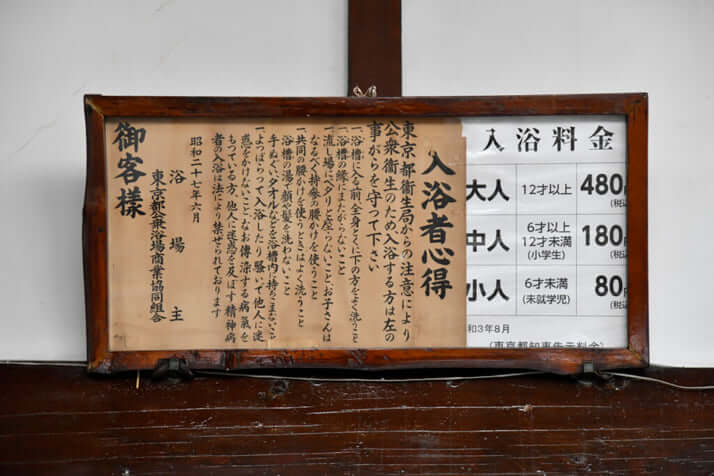 入浴者心得
東京都衛生局からの注意により
公衆衛生のため入浴する方は左の
事がらを守って下さい
一、浴槽に入る前、全身とくに下の方をよく洗うこと
一、浴槽の縁にまたがらないこと
一、流し場にペタリと座らないこと、お子さんは
なるべく持参の腰かけを使うこと
一、共同の腰かけを使うときはよく洗うこと
浴槽の湯で顔や髪を洗わないこと
手ぬぐい、タオルなどを浴槽内に持ちこまないこと
一、よっぱらって入浴したり騒いで他人に迷
惑をかけないこと、なお傳染する病氣を
もっている方、他人に迷惑を及ぼす精神病
者の入浴は法により禁ぜられております
昭和二十七年六月
浴場主
東京都公衆浴場商業協同組合
御客様
入浴料金
大人 12才以上 480円
(税込
中人 6才以上
12才未満
(小学生) 180円
(税込
小人 6才未満
(未就学児) 80円
(税込
和3年8月
(東京都知事告示料金)